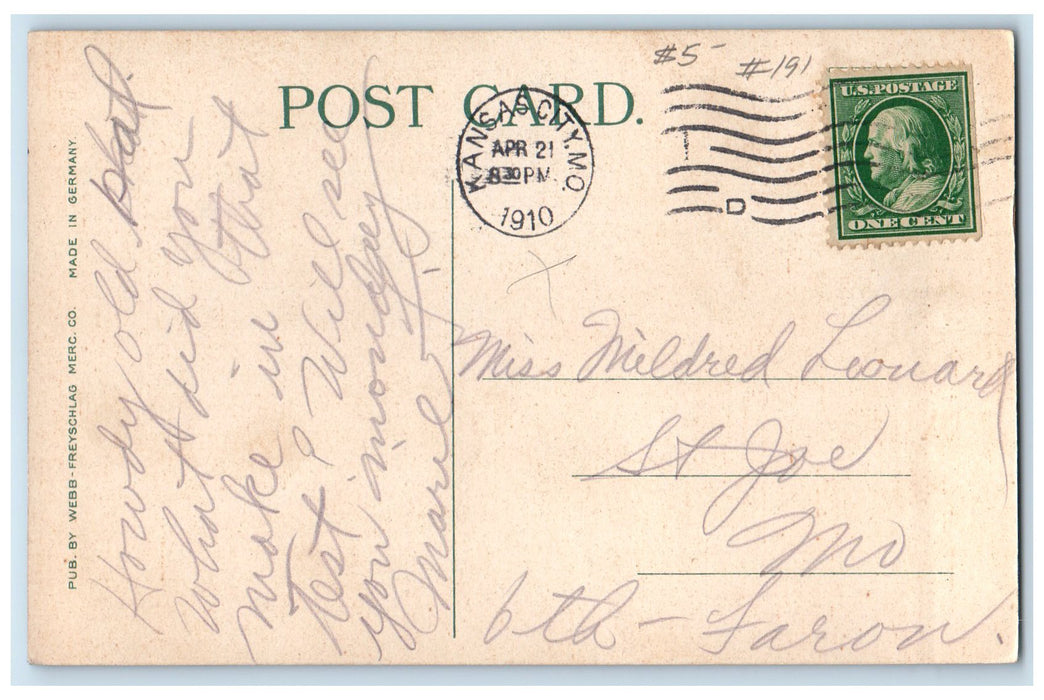 #5-
#191
POST CARD.
KANSAS CITY, MO.
APR 21
8 30 PM
1910
D
U.S. POSTAGE
ONE CENT
PUB. BY WEBB-FREYSCHLAG MERC. CO. MADE IN GERMANY.
Howdy old
What did you
make in that
Test? Will see
you monday
Marie
Miss Mildred Leonard
St Joe
Mo
6th - Faron.